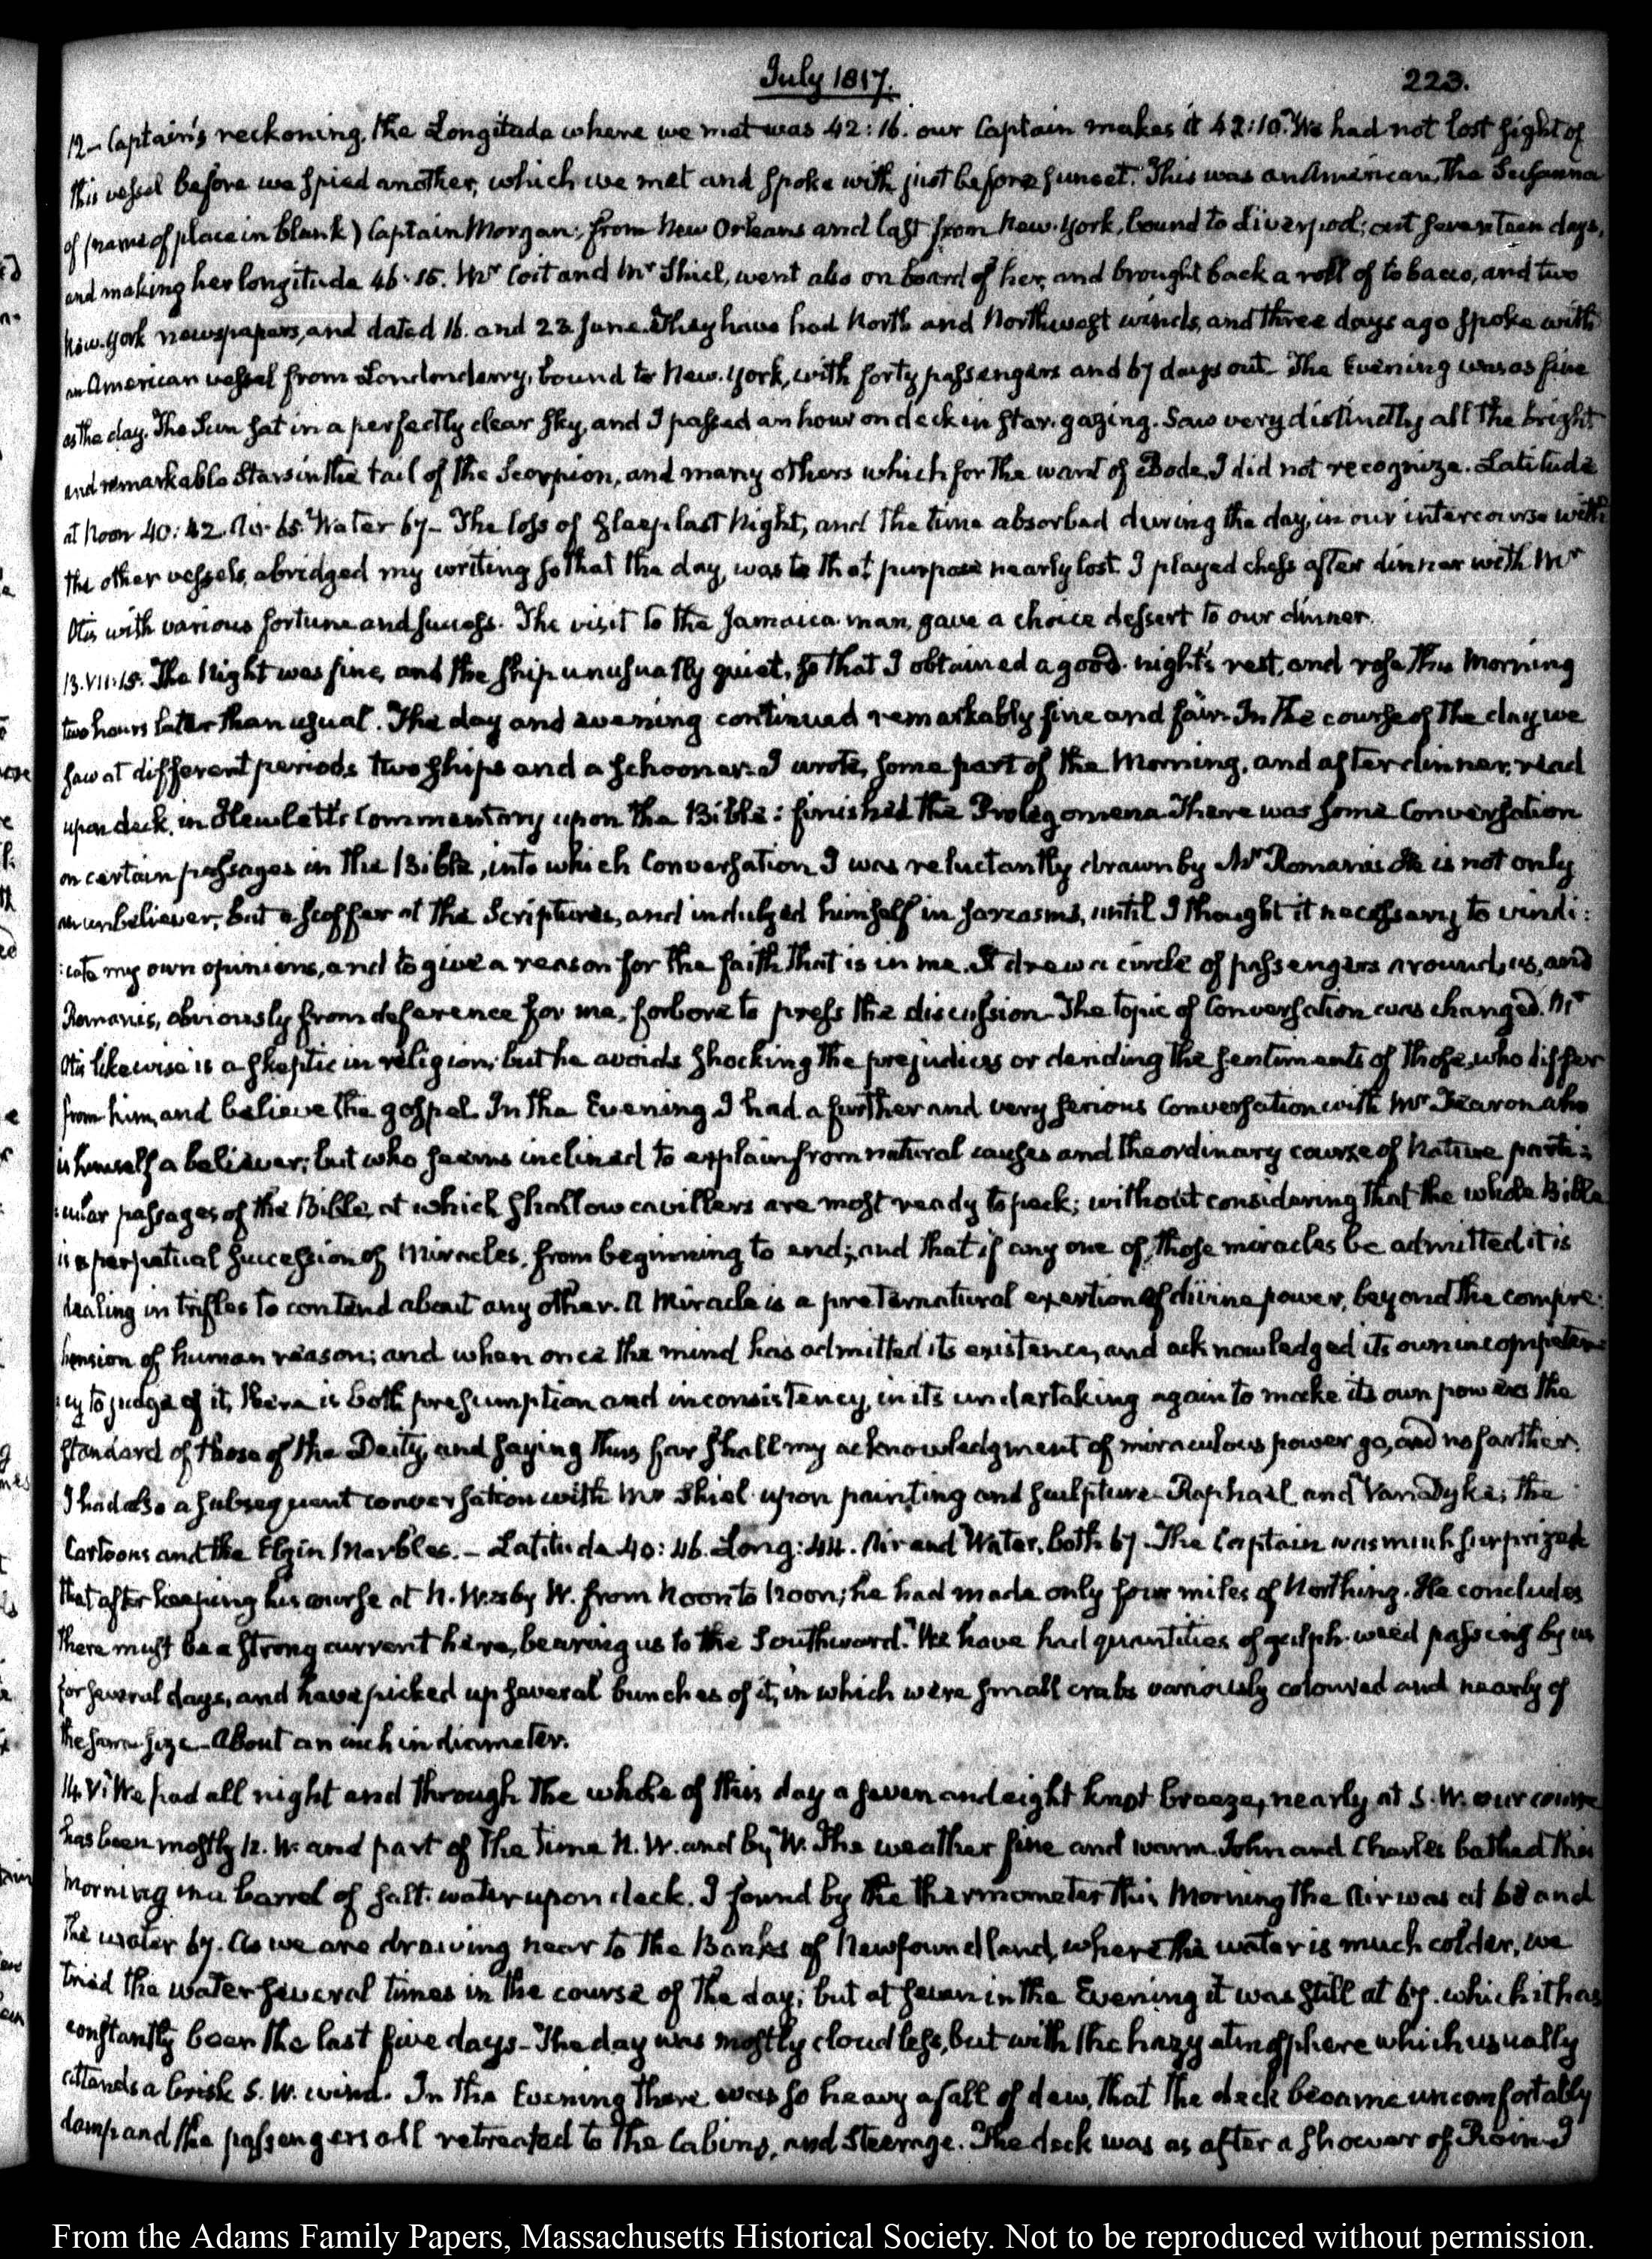 July 1817.
223.
12— Captain's reckoning. The Longitude where we met was 42:16. our Captain makes it 42:10. We had not lost sight of
this vessel before we spied another, which we met and spoke with just before sunset. This was an American, the Susanna
of (name of place in blank) Captain Morgan, from New Orleans and last from New-York, bound to Liverpool; out seventeen days,
and making her longitude 46:15. Mr Coit and Mr Shiel, went also on board of her, and brought back a roll of tobacco, and two
New-York newspapers, and dated 16. and 23. June. They have had North and Northwest winds, and three days ago spoke with
an American vessel from Londonderry, bound to New-York, with forty passengers and 67 days out— The Evening was as fine
as the day. The Sun sat in a perfectly clear sky, and I passed an hour on deck in star-gazing. Saw very distinctly all the bright
and remarkable Stars in the tail of the Scorpion, and many others which for the want of Bode, I did not recognize. Latitude
at Noon 40:42. Air 65. Water 67— The loss of sleep last Night, and the time absorbed during the day, in our intercourse with
the other vessels, abridged my writing so that the day, was to that purpose nearly lost. I played chess after dinner with Mr
Otis with various fortune and success. The visit to the Jamaica-man, gave a choice dessert to our dinner.
13. VII:15. The Night was fine, and the ship unusually quiet, so that I obtained a good night's rest, and rose this Morning
two hours later than usual. The day and evening continued remarkably fine and fair. In the course of the day we
saw at different periods two ships and a schooner. I wrote, some part of the Morning, and after dinner, read
upon deck, in Hewlett's Commentary upon the Bible: finished the Prolegomena. There was some Conversation
on certain passages in the Bible, into which Conversation I was reluctantly drawn by Mr Romanis. He is not only
an unbeliever, but a scoffer at the Scriptures, and indulged himself in sarcasms, until I thought it necessary to vindi:
:cate my own opinions, and to give a reason for the faith that is in me. It drew a circle of passengers around us, and
Romanis, obviously from deference for me, forbore to press the discussion— The topic of Conversation was changed. Mr
Otis likewise is a skeptic in religion; but he avoids shocking the prejudices or deriding the sentiments of those, who differ
from him, and believe the gospel. In the Evening I had a further and very serious Conversation with Mr Fearon who
is himself a believer; but who seems inclined to explain from natural causes and the ordinary course of Nature parti:
:cular passages of the Bible, at which shallow cavillers are most ready to peck; without considering that the whole Bible
is a perpetual succession of Miracles, from beginning to end; and that if any one of those miracles be admitted it is
dealing in trifles to contend about any other. A Miracle is a preternatural exertion of divine power, beyond the compre:
hension of human reason; and when once the mind has admitted its existence, and acknowledged its own incompeten:
:cy to judge of it, there is both presumption and inconsistency, in its undertaking again to make its own powers the
standard of those of the Deity, and saying thus far shall my acknowledgment of miraculous power go, and no farther.
I had also a subsequent conversation with Mr Shiel upon painting and sculpture— Raphael and Van Dyke; the
Cartoons and the Elgin Marbles.— Latitude 40:46. Long: 44. Air and Water, both 67. The Captain was much surprized
that after keeping his course at N.W. by W. from Noon to Noon, he had made only four miles of Northing. He concludes
there must be a strong current here, bearing us to the Southward. We have had quantities of gulph-weed passing by us
for several days, and have picked up several bunches of it, in which were small crabs variously coloured and nearly of
the same size— About an inch in diameter.
14. VI. We had all night and through the whole of this day a seven and eight knot breeze, nearly at S.W. our course
has been mostly N.W. and part of the time N.W. and by W. The weather fine and warm. John and Charles bathed this
Morning in a barrel of salt-water upon deck. I found by the thermometer this Morning the Air was at 68 and
the water 67. As we are drawing near to the Banks of Newfoundland, where the water is much colder, we
tried the water several times in the course of the day; but at seven in the Evening it was still at 67. which it has
constantly been the last five days— The day was mostly cloudless, but with the hazy atmosphere which usually
attends a brisk S.W. wind. In the Evening there was so heavy a fall of dew, that the deck became uncomfortably
damp and the passengers all retreated to the Cabins, and Steerage. The deck was as after a shower of Rain. I
From the Adams Family Papers, Massachusetts Historical Society. Not to be reproduced without permission.